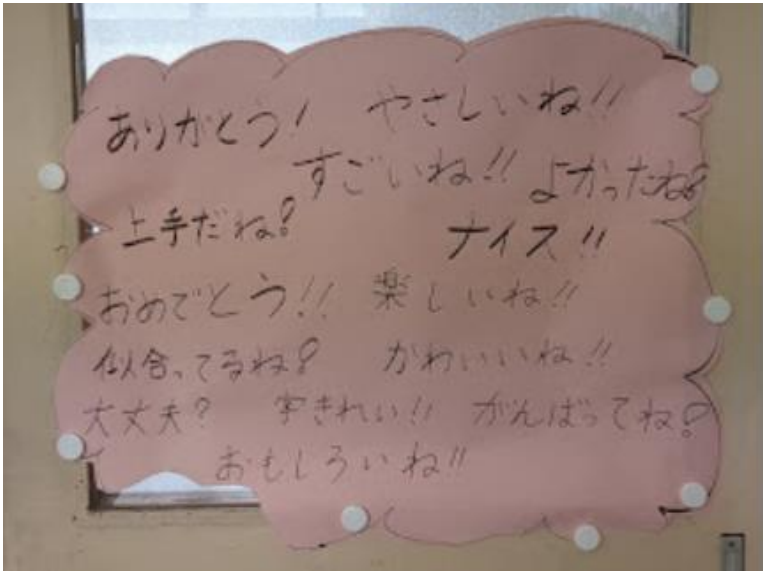 ありがとう! やさしいね!!
すごいね!! よかったね!
上手だね! ナイス!!
おめでとう!! 楽しいね!!
似合ってるね! かわいいね!!
大丈夫? 字きれい!! がんばってね!
おもしろいね!!